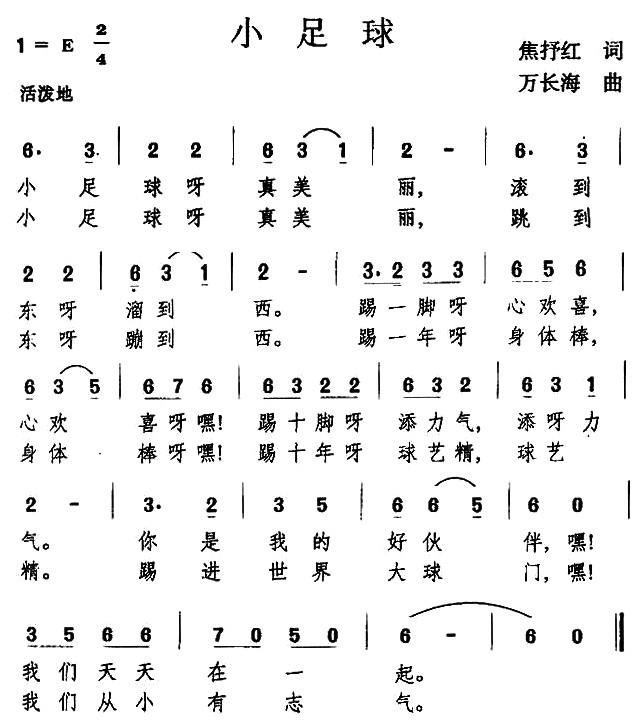 小足球
1=E 2/4
焦抒红 词
万长海 曲
活泼地
6· 3 | 2 2 | 6 3 1 | 2 - | 6· 3 |
小 足 球 呀 真美 丽, 滚 到
小 足 球 呀 真美 丽, 跳 到
2 2 | 6 3 1 | 2 - | 3·2 3 3 | 6 5 6 |
东 呀 溜到 西。 踢一脚呀 心欢喜,
东 呀 蹦到 西。 踢一年呀 身体棒,
6 3 5 | 6 7 6 | 6 3 2 2 | 6 3 2 | 6 3 1 |
心欢 喜呀嘿! 踢十脚呀 添力气, 添呀力
身体 棒呀嘿! 踢十年呀 球艺精, 球艺
2 - | 3· 2 | 3 5 | 6 6 5 | 6 0 |
气。 你 是 我 的 好伙 伴, 嘿!
精。 踢 进 世 界 大球 门, 嘿!
3 5 6 6 | 7 0 5 0 | 6 - | 6 0 ‖
我们天天 在 一 起。
我们从小 有 志 气。